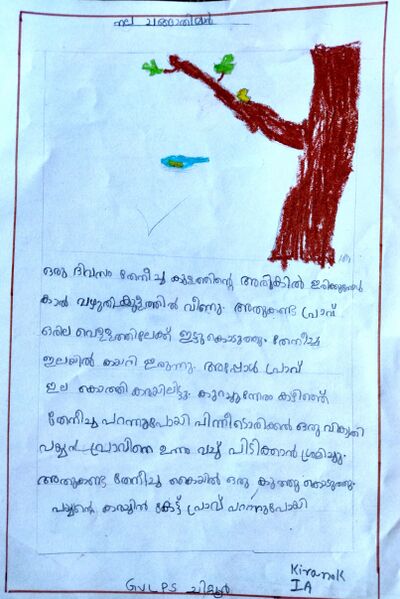 നല്ല ചങ്ങാതിമാർ
ഒരു ദിവസം തേനീച്ച കുളത്തിന്റെ അരികിൽ ഇരിക്കുമ്പോൾ
കാൽ വഴുതി കുളത്തിൽ വീണു. അതുകണ്ട പ്രാവ്
ഒരില വെള്ളത്തിലേക്ക് ഇട്ടുകൊടുത്തു. തേനീച്ച
ഇലയിൽ കയറി ഇരുന്നു. അപ്പോൾ പ്രാവ്
ഇല കൊത്തി കരയിലിട്ടു. കുറച്ചുനേരം കഴിഞ്ഞ്
തേനീച്ച പറന്നുപോയി പിന്നീടൊരിക്കൽ ഒരു വികൃതി
പയ്യൻ പ്രാവിനെ ഉന്നം വച്ച് പിടിക്കാൻ ശ്രമിച്ചു.
അതുകണ്ട തേനീച്ച കൈയിൽ ഒരു കുത്തു കൊടുത്തു.
പയ്യന്റെ കരച്ചിൽ കേട്ട് പ്രാവ് പറന്നുപോയി
Kiran.K
GVLPS ചിറ്റൂർ
I A